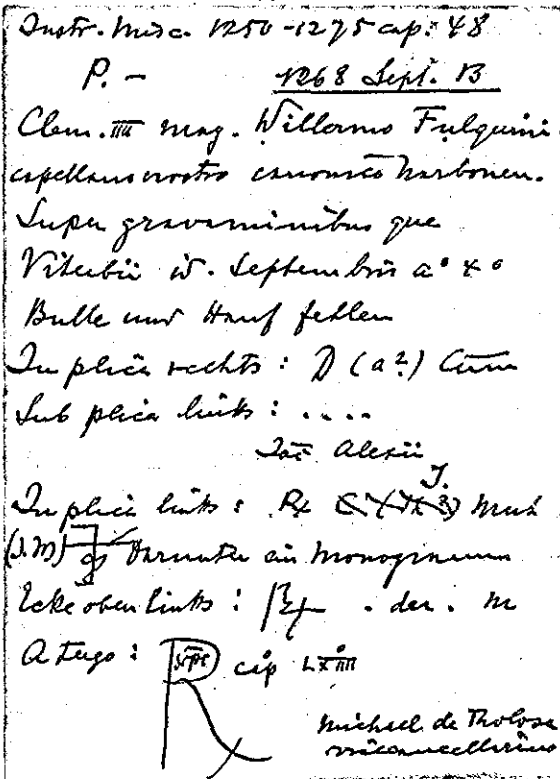 Instr. Misc. 1250-1275 cap: 48
P. - 1268 Sept. 13
Clem. IIII mag. Willermo Fulquini
capellano nostro canonico Narbonen.
Super gravaminibus que
Viterbii id. Septembris a° 4°
Bulle und Hanf fehlen
In plica rechts: D (a?) Cum
Sub plica links: ....
Jac Alexii
In plica links: Rx
(J.M) darunter ein Monogramm
Ecke oben links: . der . m
A tergo: R scpt cap LXIIII
Michael de Tholosa
vicecancellarius